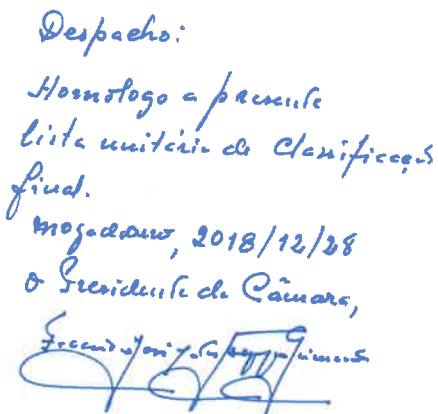 Despacho:
Homologo a presente
lista unitária de Classificação
final.
Mogadouro, 2018/12/28
O Presidente da Câmara,
Francisco José